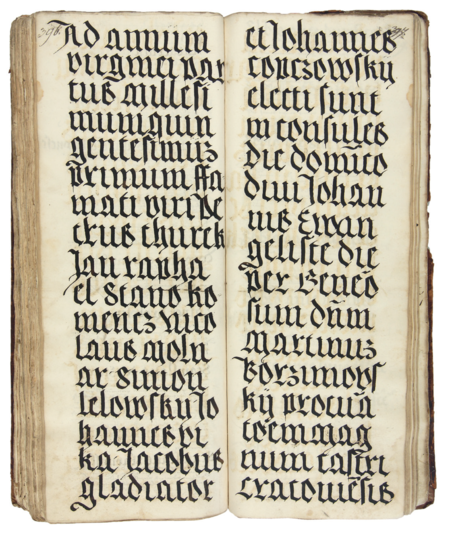 396.
Ad annum
virginei par
tus millesi
mumquin
gentesimuz
primum ffa
mati viri Pe
trus thurek
Jan rapha
el Stano ko
mencz Nico
laus moln
ar Simon
lelowsky Jo
hannes pi
ka Jacobus
gladiator
et Johannes
copczowsky
electi sunt
in consules
die domīco
diui Johan
nis Ewan
geliste die
per Geneo
sum dn̄m
martinuz
Borzimows
ky procua
toemmag
num castri
cracouiēsis